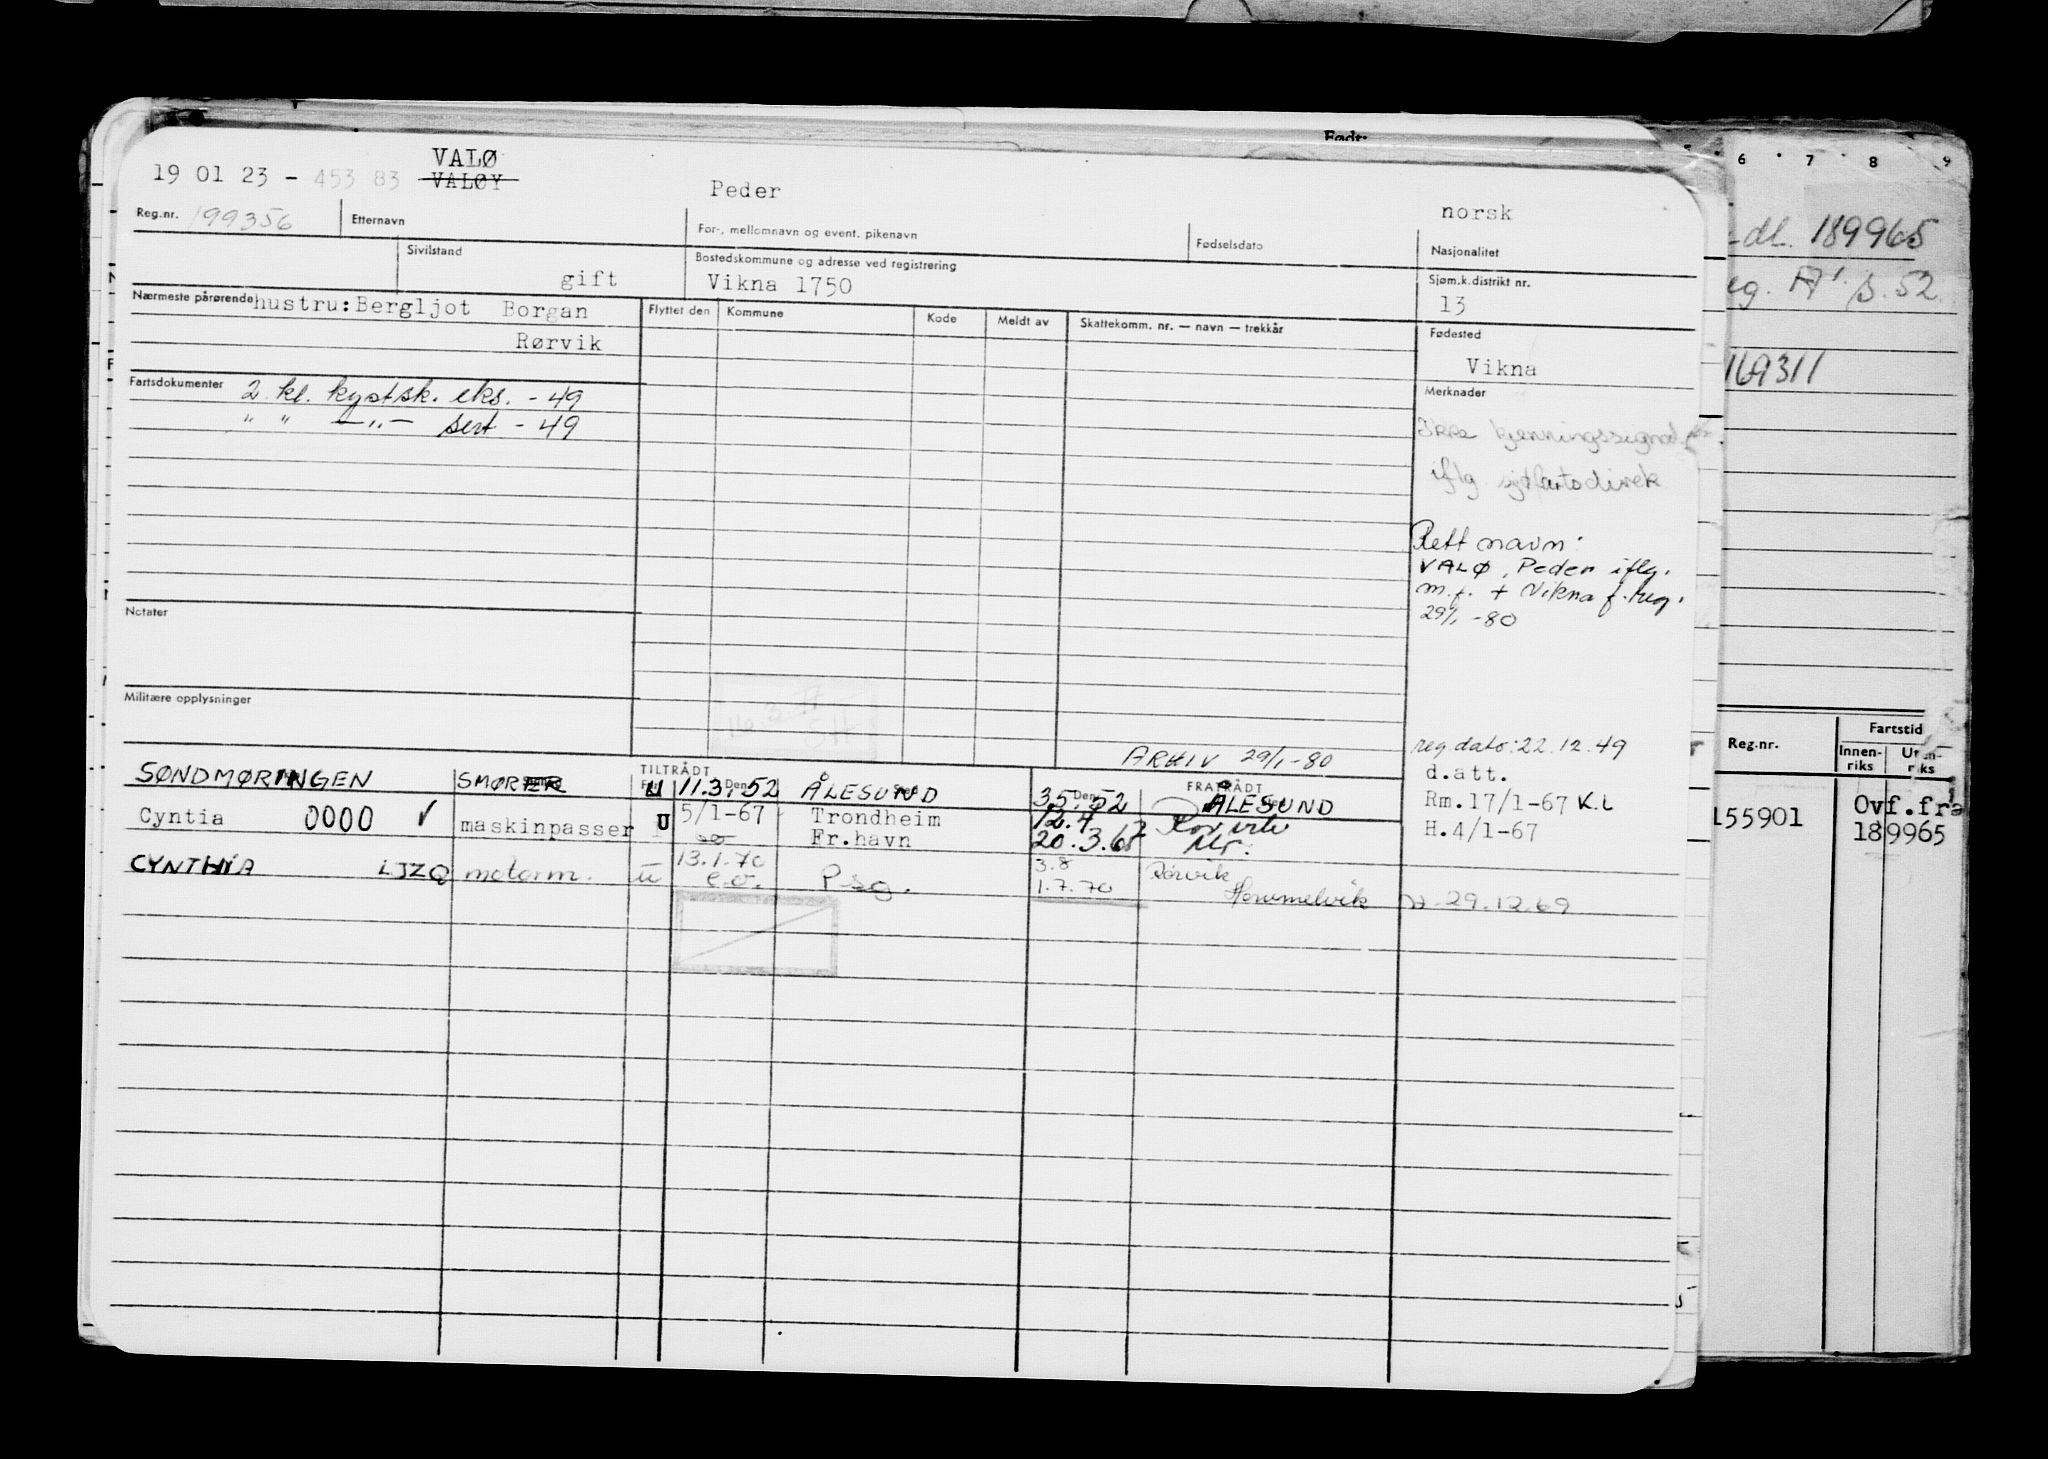 Født:
6 7 8 9
VALØ
19 01 23 - 453 83 VALØY
Peder
norsk
Reg.nr. 199356
Etternavn
For-, mellomnavn og event. pikenavn
Fødselsdato
Nasjonalitet
Sivilstand
gift
Bostedskommune og adresse ved registrering
Vikna 1750
Sjøm.k.distrikt nr.
13
Nærmeste pårørende hustru: Bergljot Borgan
Rørvik
Flyttet den
Kommune
Kode
Meldt av
Skattekomm. nr. — navn — trekkår
Fødested
Vikna
Fartsdokumenter 2 kl. kystsk. eks. - 49
" " —"— sert - 49
Merknader
Ikke kjenningssignal
iflg. sjøfartsdirek
Rett navn:
VALØ, Peder iflg.
m.f. + Vikna f.reg.
29/1 -80
Notater
Militære opplysninger
ARKIV 29/1-80
reg.dato: 22.12.49
d.att.
Rm.17/1-67 K.L
H.4/1-67
TILTRÅDT
FRATRÅDT
SØNDMØRINGEN SMØRER U 11.3.52 ÅLESUND 3.5.52 ÅLESUND
Cyntia 0000 ✓ maskinpasser U 5/1-67 Trondheim 12.4 Rørvik
Fr.havn 20.3.67
CYNTHIA LJZQ motorm. u 13.1.70 Psg. 3.8 Rørvik
e.o. 1.7.70 Hommelvik
29.12.69
dl. 189965
eg. A'. s.52
169311
Reg.nr.
Fartstid
Innen-
riks
Uten-
riks
155901
Ovf.fra
189965